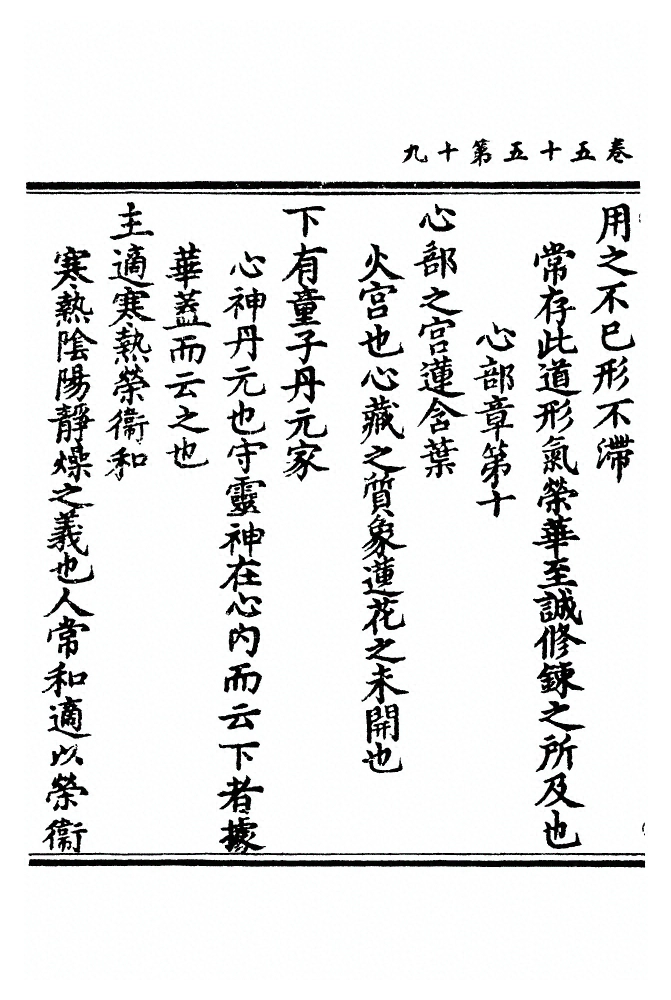 卷五十五第十九
用之不已形不滯
常存此道形氣榮華至誠修鍊之所及也
心部章第十
心部之宮蓮含葉
火宮也心藏之質象蓮花之未開也
下有童子丹元家
心神丹元也守靈神在心內而云下者據
華蓋而云之也
主適寒熱榮衞和
寒熱陰陽靜燥之義也人常和適以榮衞